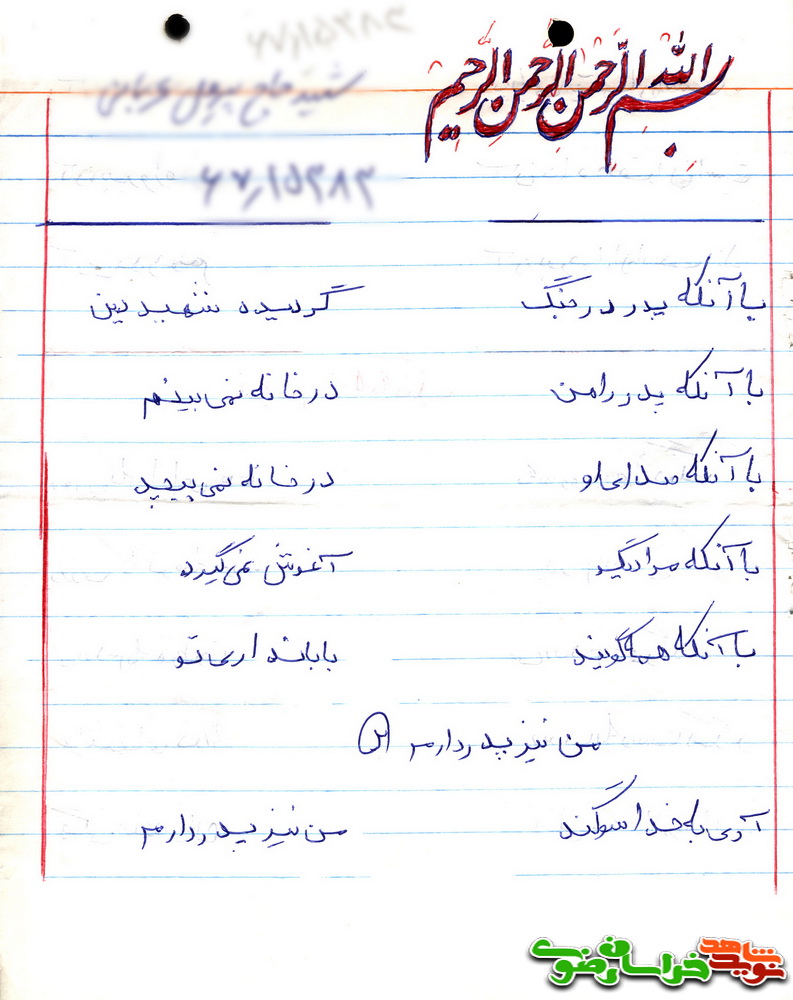 بسم الله الرحمن الرحیم
با آنکه پدر در جنگ گردیده شهید دین
با آنکه پدر را من در خانه نمی بینم
با آنکه صدای او در خانه نمی پیچید
با آنکه مرا دیگر آغوش نمی گیرد
با آنکه همه گویند بابا نداری تو
من نیز پدر دارم
آری به خدا سوگند من نیز پدر دارم
نوید شاهد خراسان رضوی